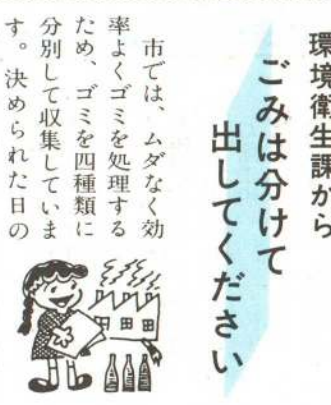 環境衛生課から
ごみは分けて
出してください
市では、ムダなく効
率よくゴミを処理する
ため、ゴミを四種類に
分別して収集していま
す。決められた日の